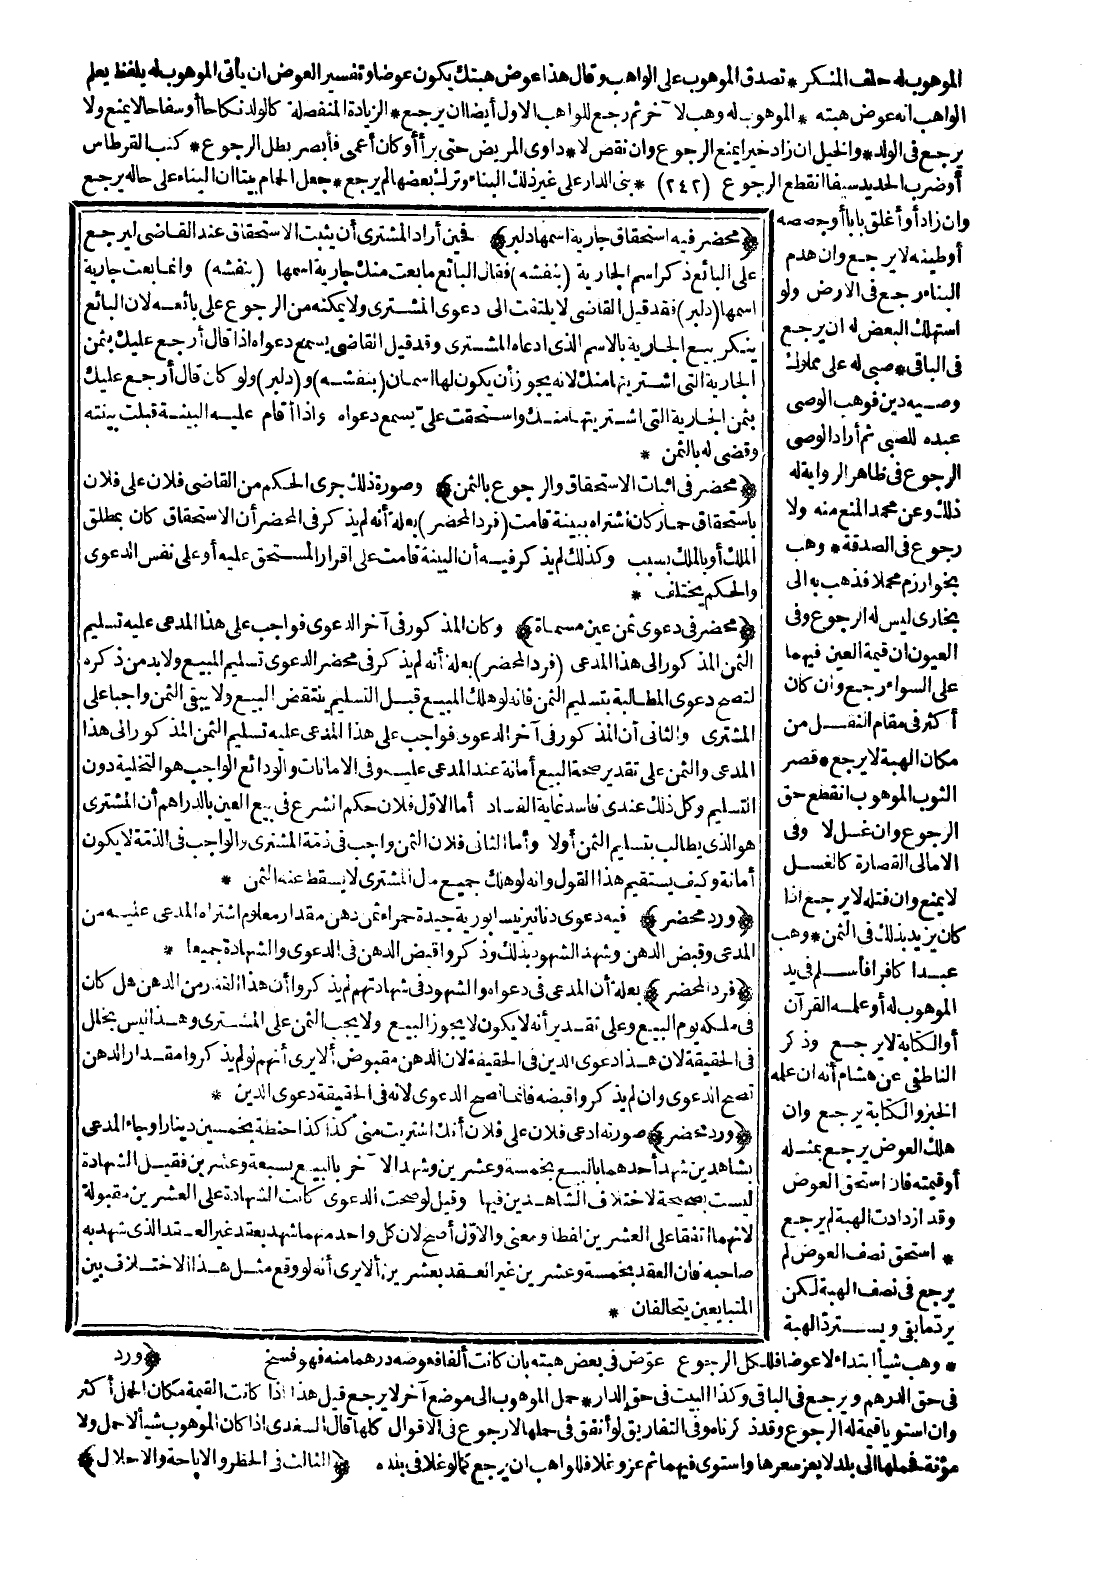 الموهوب له حلف المنكر * تصدق الموهوب على الواهب وقال هذا عوض هبتك يكون عوضا وتفسير العوض ان يأتى الموهوب له بلفظ يعلم
الواهب انه عوض هبته * الموهوب له وهب لآخر ثم رجع للواهب الاول أيضا ان يرجع * الزيادة المنفصلة كالولد نكاحا أو سفاحا لا يمنع ولا
يرجع فى الولد * والخيل ان زاد خيرا يمنع الرجوع وان نقص لا * داوى المريض حتى برأ أو كان أعمى فأبصر بطل الرجوع * كتب القرطاس
أو ضرب الحديد سيفا انقطع الرجوع (٢٤٢) * بنى الدار على غير ذلك البناء وترك بعضها لم يرجع * جعل الحمام بيتا ان البناء على حاله يرجع
وان زاد أو أغلق بابا أو جصصه
أو طينه لا يرجع وان هدم
البناء رجع فى الارض ولو
استهلك البعض له ان يرجع
فى الباقى * صبى له على مملوك
وصيه دين فوهب الوصى
عبده للصبى ثم أراد الوصى
الرجوع فى ظاهر الرواية له
ذلك وعن محمد المنع منه ولا
رجوع فى الصدقة * وهب
بخوارزم محملا فذهب به الى
بخارى ليس له الرجوع وفى
العيون ان قيمة العين فيهما
على السواء رجع وان كان
أكثر فى مقام النقل من
مكان الهبة لا يرجع * قصر
الثوب الموهوب انقطع حق
الرجوع وان غسل لا وفى
الامالى القصارة كالغسل
لا يمنع وان فتله لا يرجع اذا
كان يزيد بذلك فى الثمن * وهب
عبدا كافرا فأسلم فى يد
الموهوب له أو علمه القرآن
أو الكتابة لا يرجع وذكر
الناطفى عن هشام أنه ان علمه
الخبز والكتابة يرجع وان
هلك العوض يرجع بمثله
أو قيمته فان استحق العوض
وقد ازدادت الهبة لم يرجع
* استحق نصف العوض لم
يرجع فى نصف الهبة لكن
يرد ما بقى ويسترد الهبة
﴿محضر فيه استحقاق جارية اسمها دلبر﴾ فحين أراد المشترى أن يثبت الاستحقاق عند القاضى ليرجع
على البائع ذكر اسم الجارية (بنفشه) فقال البائع ما بعت منك جارية اسمها (بنفشه) وانما بعت جارية
اسمها (دلبر) فقد قيل القاضى لا يلتفت الى دعوى المشترى ولا يمكنه من الرجوع على بائعه لان البائع
ينكر بيع الجارية بالاسم الذى ادعاه المشترى وقد قيل القاضى يسمع دعواه اذا قال أرجع عليك بثمن
الجارية التى اشتريتها منك لانه يجوز أن يكون لها اسمان (بنفشه) و (دلبر) ولو كان قال أرجع عليك
بثمن الجارية التى اشتريتها منك واستحقت على تسمع دعواه واذا أقام عليه البينة قبلت بينته
وقضى له بالثمن *
﴿محضر فى اثبات الاستحقاق والرجوع بالثمن﴾ وصورة ذلك جرى الحكم من القاضى فلان على فلان
باستحقاق حمار كان اشتراه ببينة قامت (فرد المحضر) بعلة أنه لم يذكر فى المحضر أن الاستحقاق كان بمطلق
الملك أو بالملك بسبب وكذلك لم يذكر فيه أن البينة قامت على اقرار المستحق عليه أو على نفس الدعوى
والحكم يختلف *
﴿محضر فى دعوى ثمن عين مسماة﴾ وكان المذكور فى آخر الدعوى فواجب على هذا المدعى عليه تسليم
الثمن المذكور الى هذا المدعى (فرد المحضر) بعلة أنه لم يذكر فى محضر الدعوى تسليم المبيع ولا بد من ذكره
لتصح دعوى المطالبة بتسليم الثمن فانه لو هلك المبيع قبل التسليم ينتقض البيع ولا يبقى الثمن واجبا على
المشترى والثانى أن المذكور فى آخر الدعوى فواجب على هذا المدعى عليه تسليم الثمن المذكور الى هذا
المدعى والثمن على تقدير صحة البيع أمانة عند المدعى عليه وفى الامانات والودائع الواجب هو التخلية دون
التسليم وكل ذلك عندى فاسد غاية الفساد أما الاول فلان حكم الشرع فى بيع العين بالدراهم أن المشترى
هو الذى يطالب بتسليم الثمن أولا وأما الثانى فلان الثمن واجب فى ذمة المشترى والواجب فى الذمة لا يكون
أمانة وكيف يستقيم هذا القول وانه لو هلك جميع مال المشترى لا يسقط عنه الثمن *
﴿ورد محضر﴾ فيه دعوى دنانير نيسابورية جيدة حمراء ثمن دهن مقدار معلوم اشتراه المدعى عليه من
المدعى وقبض الدهن وشهد الشهود بذلك وذكروا قبض الدهن فى الدعوى والشهادة جميعا *
﴿فرد المحضر﴾ بعلة أن المدعى فى دعواه والشهود فى شهادتهم لم يذكروا أن هذا القدر من الدهن هل كان
فى ملكه يوم البيع وعلى تقدير أنه لا يكون لا يجوز البيع ولا يجب الثمن على المشترى وهذا ليس بخلل
فى الحقيقة لان هذا دعوى الدين فى الحقيقة لان الدهن مقبوض ألا يرى أنهم لو لم يذكروا مقدار الدهن
تصح الدعوى وان لم يذكروا قبضه فانما تصح الدعوى لانه فى الحقيقة دعوى الدين *
﴿ورد محضر﴾ صورته ادعى فلان على فلان أنك اشتريت منى كذا كذا حنطة بخمسين دينارا وجاء المدعى
بشاهدين شهد أحدهما بالبيع بخمسة وعشرين وشهد الآخر بالبيع بسبعة وعشرين فقيل الشهادة
ليست بصحيحة لاختلاف الشاهدين فيها وقيل لو صحت الدعوى كانت الشهادة على العشرين مقبولة
لانهما اتفقا على العشرين لفظا ومعنى والاول أصح لان كل واحد منهما شهد بعقد غير العقد الذى شهد به
صاحبه فان العقد بخمسة وعشرين غير العقد بعشرين ألا يرى أنه لو وقع مثل هذا الاختلاف بين
المتبايعين يتحالفان *
* وهب شيأ ابتداء لا عوضا فللكل الرجوع عوض فى بعض هبته بان كانت ألفا فعوضه درهما منه فهو فسخ ﴿ورد
فى حق الدرهم ويرجع فى الباقى وكذا البيت فى حق الدار * حمل الموهوب الى موضع آخر لا يرجع قيل هذا اذا كانت القيمة مكان الحمل أكثر
وان استويا قيمة له الرجوع وقد ذكرناه وفى التفاريق لو أنفق فى حملها لا رجوع فى الاقوال كلها قال السغدى اذا كان الموهوب شيأ لا حمل ولا
مؤنة فحملها الى بلد لا يعز سعرها واستوى فيهما ثم عز وغلا فللواهب ان يرجع كما لو غلا فى بلده ﴿الثالث فى الحظر والاباحة والاحلال﴾